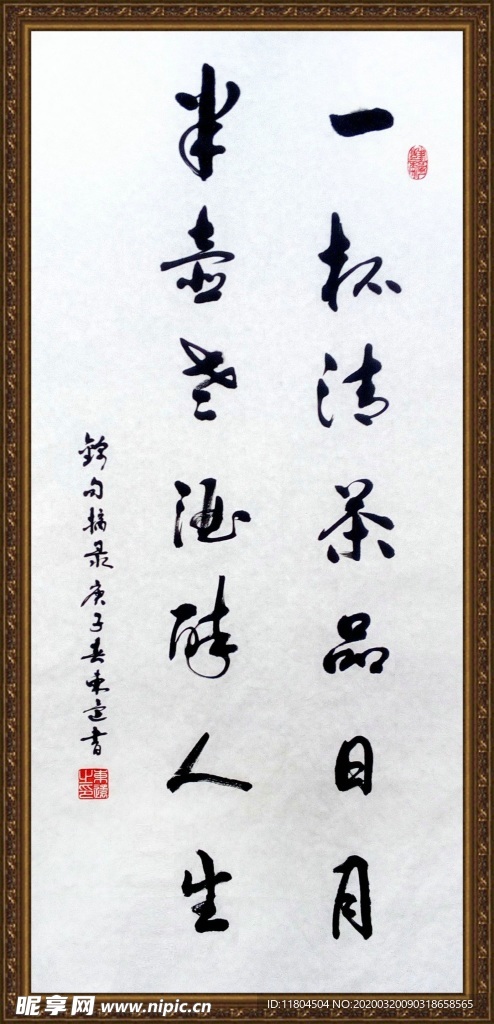 一杯清茶品日月
半壶老酒醉人生
锦句摘录庚子春东逸书
昵享网 www.nipic.cn
ID:11804504 NO:20200320090318658565